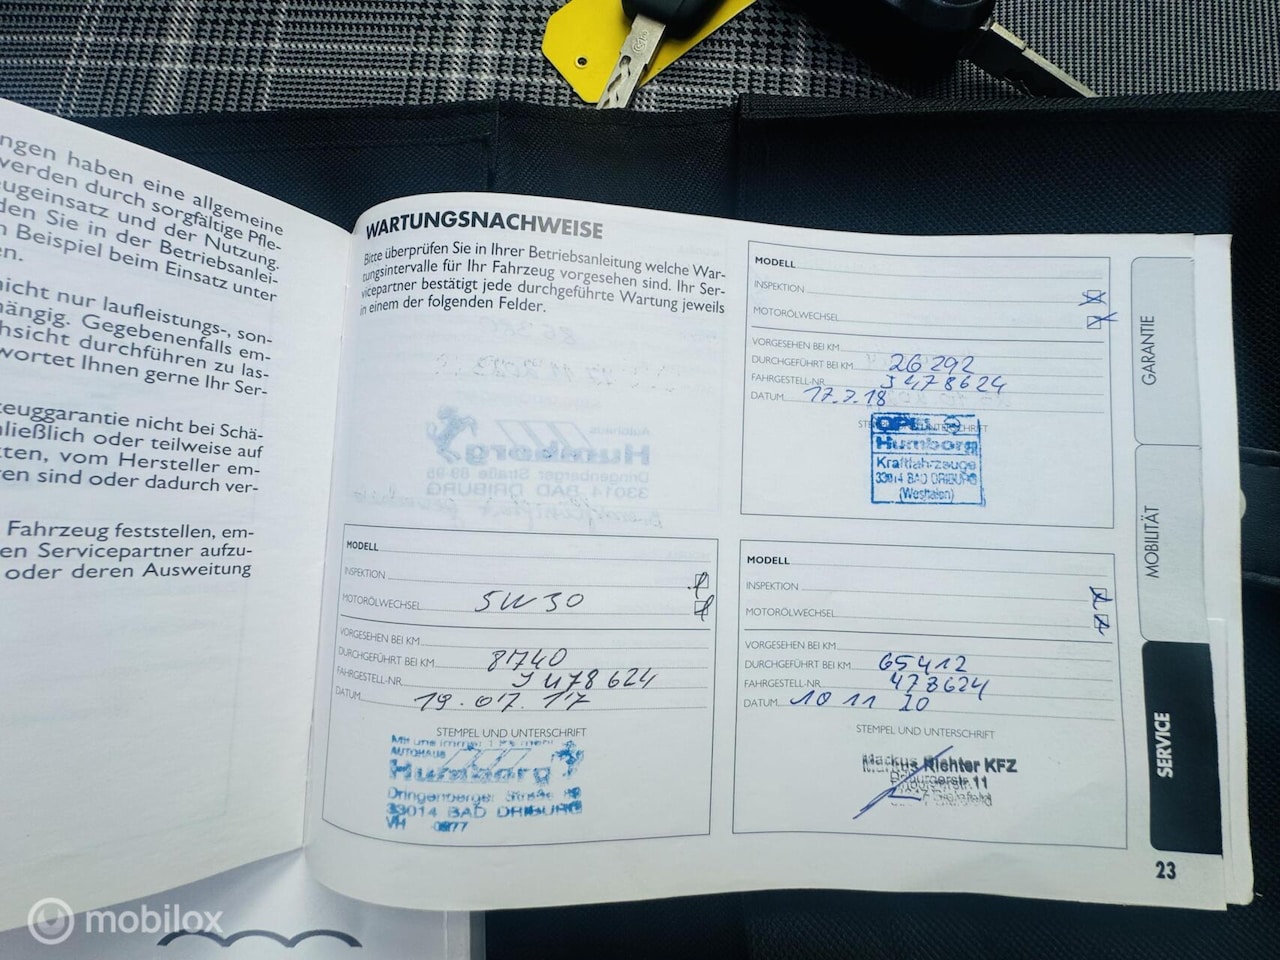 ngen haben eine allgemeine
werden durch sorgfältige Pfle-
eugeinsatz und der Nutzung.
den Sie in der Betriebsanlei-
n Beispiel beim Einsatz unter
en.
nicht nur laufleistungs-, son-
hängig. Gegebenenfalls em-
hsicht durchführen zu las-
wortet Ihnen gerne Ihr Ser-
zeuggarantie nicht bei Schä-
ließlich oder teilweise auf
kten, vom Hersteller em-
ren sind oder dadurch ver-
Fahrzeug feststellen, em-
en Servicepartner aufzu-
oder deren Ausweitung
WARTUNGSNACHWEISE
Bitte überprüfen Sie in Ihrer Betriebsanleitung welche War-
tungsintervalle für Ihr Fahrzeug vorgesehen sind. Ihr Ser-
vicepartner bestätigt jede durchgeführte Wartung jeweils
in einem der folgenden Felder.
MODELL
INSPEKTION
MOTORÖLWECHSEL
VORGESEHEN BEI KM
DURCHGEFÜHRT BEI KM 26292
FAHRGESTELL-NR. J478624
DATUM 17.7.18
STEMPEL UND UNTERSCHRIFT
OPEL
Humborg
Kraftfahrzeuge
33014 BAD DRIBURG
(Westfalen)
MODELL
INSPEKTION
MOTORÖLWECHSEL 5W30
VORGESEHEN BEI KM
DURCHGEFÜHRT BEI KM 8740
FAHRGESTELL-NR. J478624
DATUM 19.07.17
STEMPEL UND UNTERSCHRIFT
Mit uns immer
AUTOHAUS
Humborg
Dringenberger Straße
33014 BAD DRIBURG
VH 0977
MODELL
INSPEKTION
MOTORÖLWECHSEL
VORGESEHEN BEI KM
DURCHGEFÜHRT BEI KM 65412
FAHRGESTELL-NR. 478624
DATUM 10 11 20
STEMPEL UND UNTERSCHRIFT
Markus Richter KFZ
Driburgerstr. 11
Bielefeld
GARANTIE
MOBILITÄT
SERVICE
23
mobilox